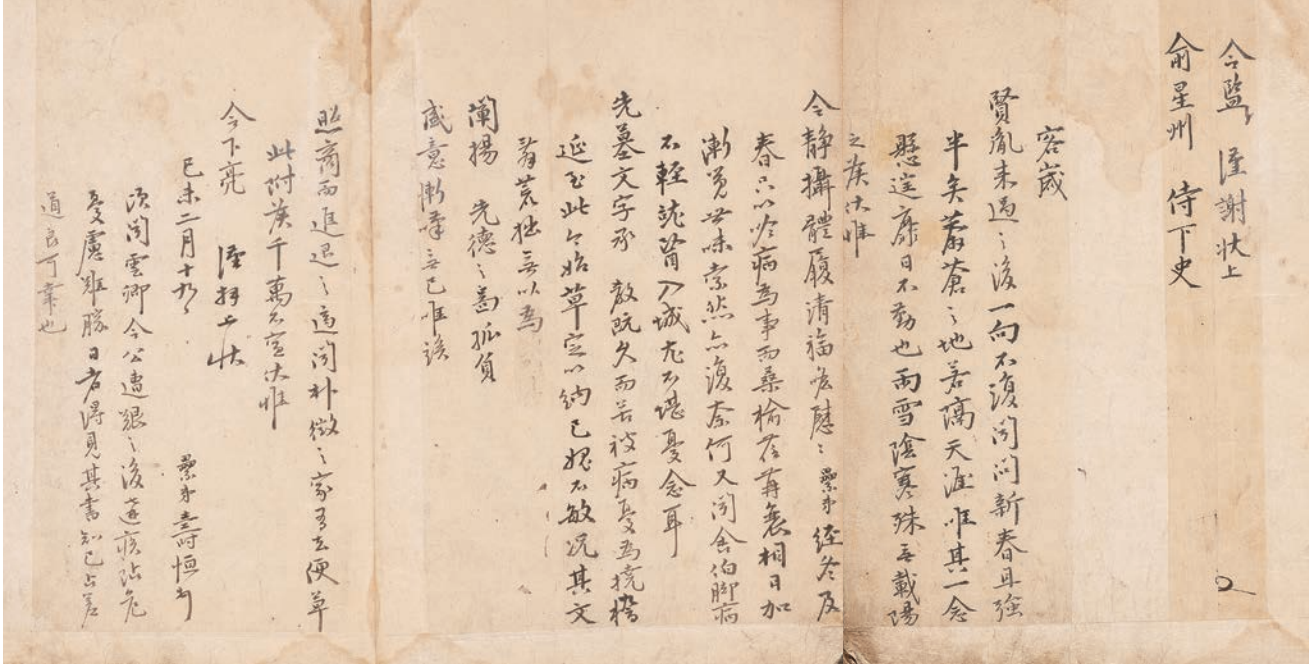 令監 謹謝狀上
俞星州 侍下史
客歲
賢胤未過之後一向不復聞問新春且強
半矣蒼蒼之地若隔天涯唯其一念
懸逹靡日不勤也雨雪陰寒殊無載陽
之候伏惟
令靜攝體履清福慰慰纍弟經冬及
春只以吟病為事而桑榆荏苒衰相日加
漸覺世味索然亦復奈何又聞舍伯脚病
不輕入城尤不堪憂念耳
先墓文字承 敎既久而若被病憂為撓
延至此今始草定以納已愧不敏況其文
荒拙無以為
闡揚 先德之啚孤負
盛意慚無已唯
照商而進退之適聞朴徵之家有去便草
此附候千萬不宣伏惟
令下亮 謹拜上狀
己未二月十九 纍弟壽恒
頃聞雲卿令公遭艱之後遘疾危
憂慮難勝日者得見其書知已占差
道良可幸也